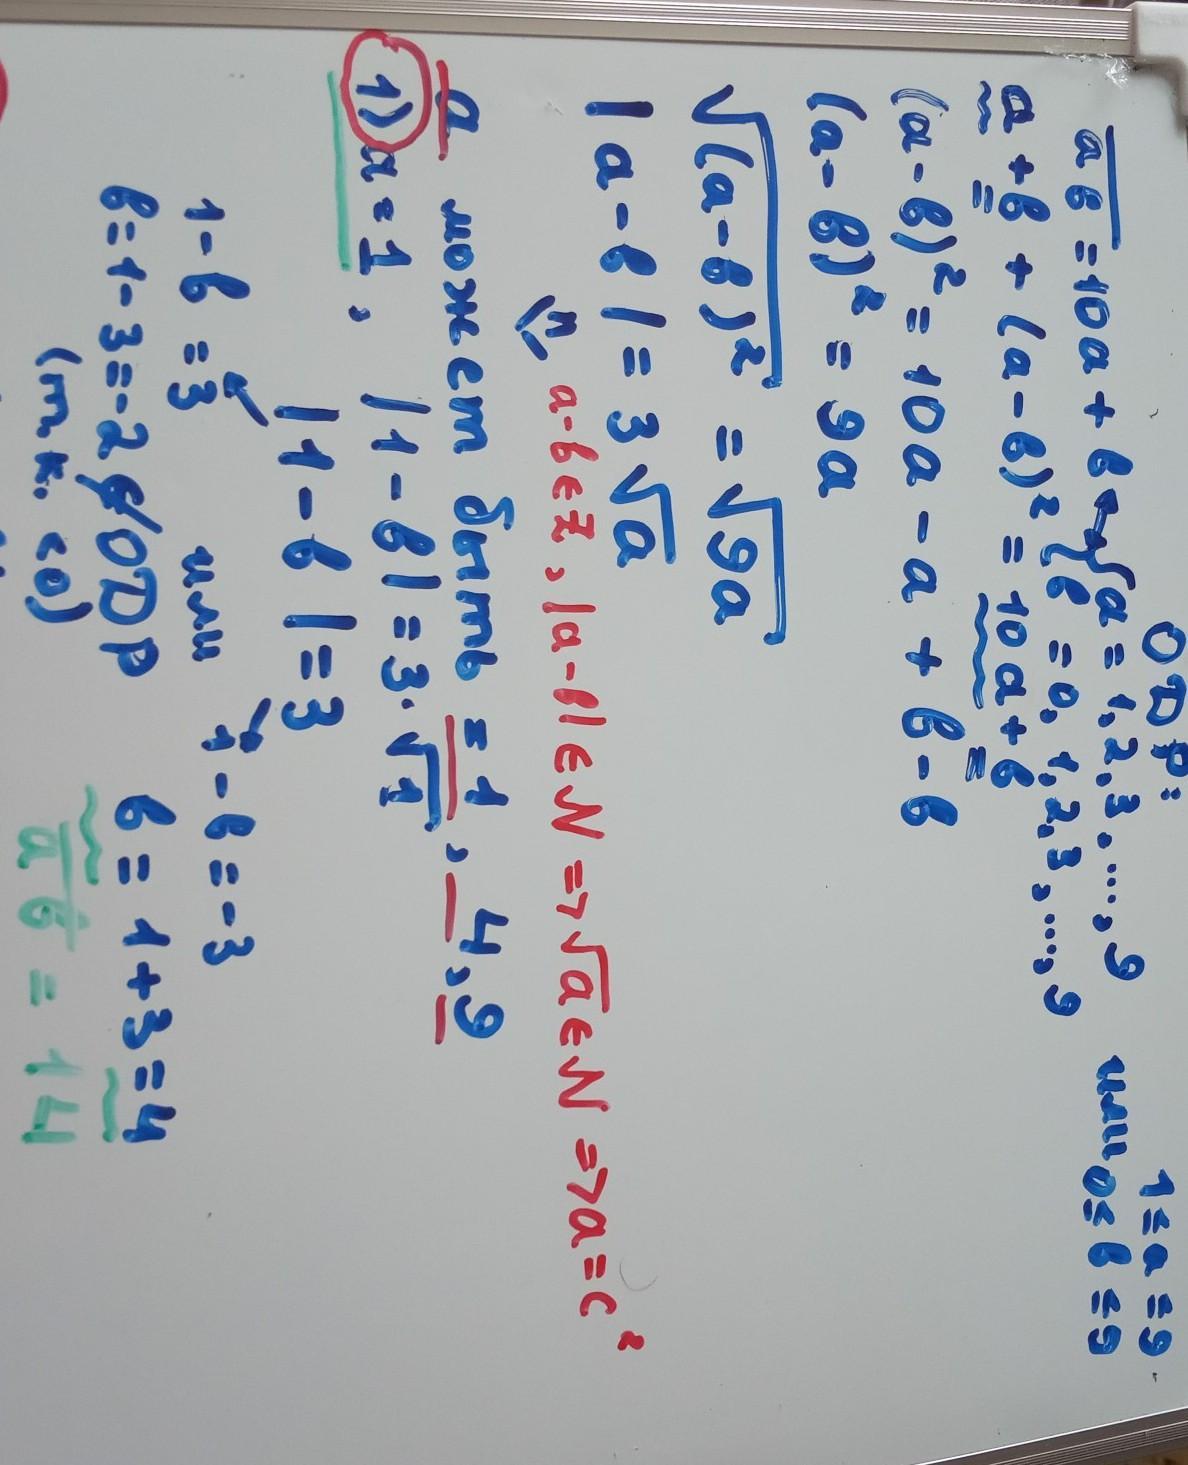 ОДР: 1≤a≤9
ab = 10a + b ↔ {a = 1,2,3,...,9 или 0≤b≤9
{b = 0,1,2,3,...,9
a + b + (a - b)² = 10a + b
(a - b)² = 10a - a + b - b
(a - b)² = 9a
√(a - b)² = √9a
|a - b| = 3√a
a-b∈Z, |a-b|∈N => √a∈N => a = c²
a может быть = 1, 4, 9
1) a = 1, |1 - b| = 3·√1
|1 - b| = 3
1 - b = 3 или 1 - b = -3
b = 1 - 3 = -2 ∉ ОДР b = 1 + 3 = 4
(т.к. <0) ab = 14